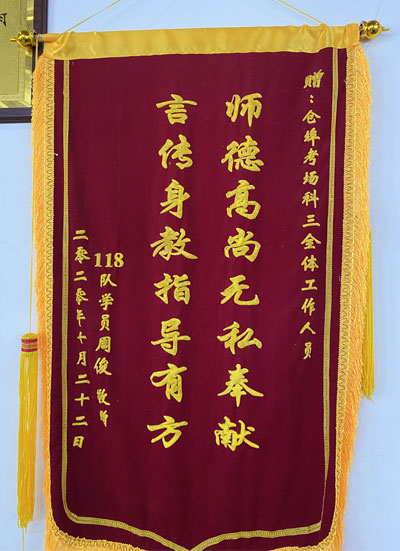 赠：仓埠考场科三全体工作人员
师德高尚无私奉献
言传身教指导有方
118队学员周俊 敬贈
二零二零年十月二十二日